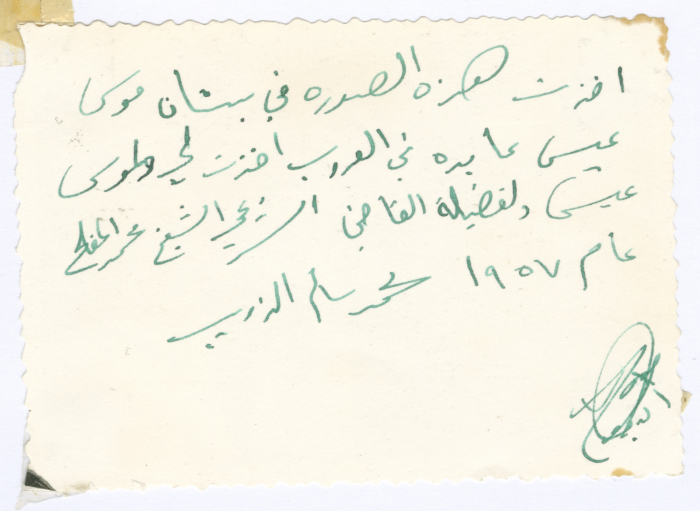 اخذت هذه الصوره في بستان موسى
عيسى عايده في العروب اخذت لي ولموسى
عيسى ولفضيلة القاضي الشرعي الشيخ محمد
عام ١٩٥٧ محمد سالم الذويب